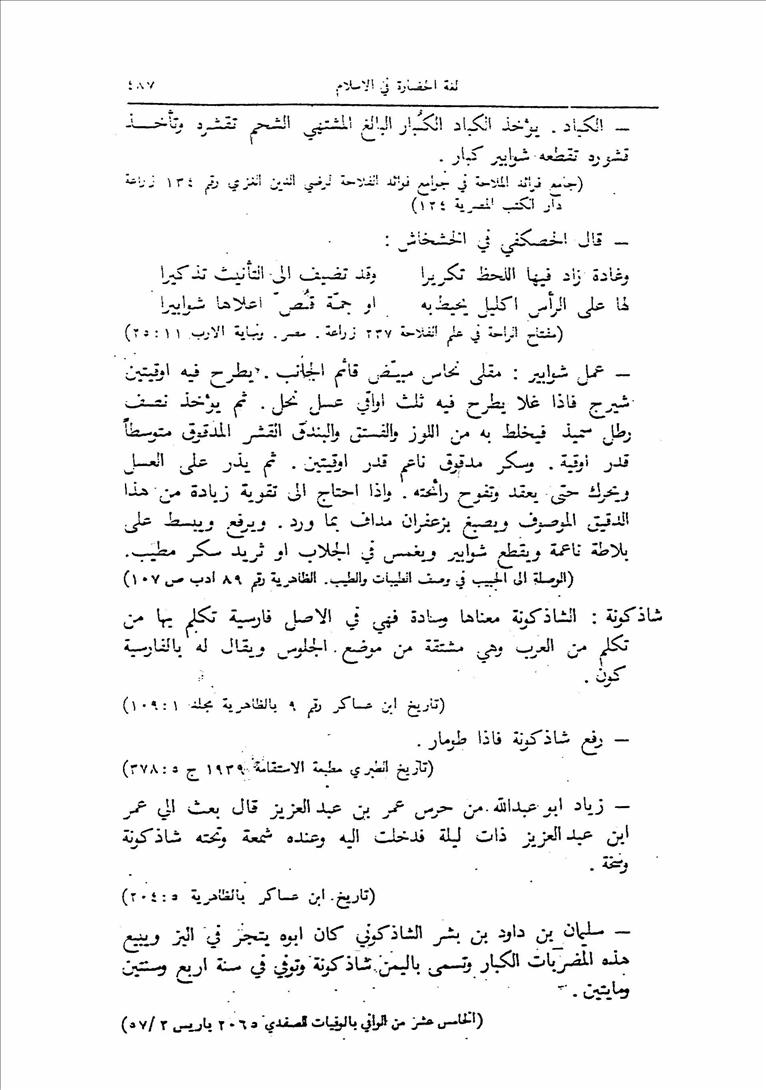 لغة الحضارة في الاسلام ٤٨٧
— الكباد . يؤخذ الكباد الكُبار البالغ المشتهي الشحم تقشره وتأخذ
قشوره تقطعه شوابير كبار .
(جامع فرائد الملاحة في جوامع فوائد الفلاحة لرضي الدين الغزي رقم ١٣٤ زراعة
دار الكتب المصرية ١٣٤)
— قال الحصكفي في الخشخاش :
وغادة زاد فيها اللحظ تكريرا وقد تضيف الى التأنيث تذكيرا
لها على الرأس اكليل يحيط به او جمّة قُنُص اعلاها شوابيرا
(مفتاح الراحة في علم الفلاحة ٢٣٧ زراعة . مصر . ونهاية الارب ١١ : ٢٥)
— عمل شوابير : مقلى نحاس مبيّض قائم الجانب . يطرح فيه اوقيتين
شيرج فاذا غلا يطرح فيه ثلث اواقي عسل نحل . ثم يؤخذ نصف
رطل سميذ فيخلط به من اللوز والفستق والبندق القشر المدقوق متوسطاً
قدر اوقية . وسكر مدقوق ناعم قدر اوقيتين . ثم يذر على العسل
ويحرك حتى يعقد وتفوح رائحته . واذا احتاج الى تقوية زيادة من هذا
الدقيق الموصوف ويصبغ بزعفران مداف بما ورد . ويرفع ويبسط على
بلاطة ناعمة ويقطع شوابير ويغمس في الجلاب او ثريد سكر مطيب .
(الوصلة الى الحبيب في وصف الطيبات والطيب . الظاهرية رقم ٨٩ أدب ص ١٠٧)
شاذكونة : الشاذكونة معناها وسادة فهي في الاصل فارسية تكلم بها من
تكلم من العرب وهي مشتقة من موضع الجلوس ويقال له بالفارسية
كون .
(تاريخ ابن عساكر رقم ٩ بالظاهرية مجلد ١ : ١٠٩)
— رفع شاذكونة فاذا طومار .
(تاريخ الطبري مطبعة الاستقامة ١٩٣٩ ج ٥ : ٣٧٨)
— زياد ابو عبدالله من حرس عمر بن عبد العزيز قال بعث الي عمر
ابن عبد العزيز ذات ليلة فدخلت اليه وعنده شمعة وتحته شاذكونة
وسخة .
(تاريخ ابن عساكر بالظاهرية ٥ : ٢٠٤)
— سليمان بن داود بن بشر الشاذكوني كان ابوه يتجر في البز ويبيع
هذه المضرّبات الكبار وتسمى باليمن شاذكونة وتوفي في سنة اربع وستين
ومايتين .
(الخامس عشر من الوافي بالوفيات للصفدي ٢٠٦٥ باريس ٢ / ٥٧)